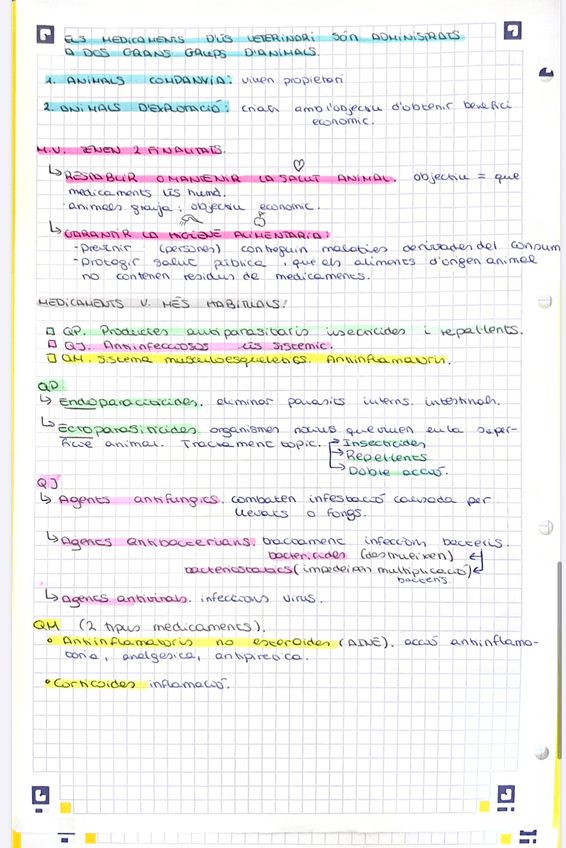 ELS MEDICAMENTS D'ÚS VETERINARI SÓN ADMINISTRATS
A DOS GRANS GRUPS D'ANIMALS.
1. ANIMALS COMPANYIA: viuen propietari
2. ANIMALS D'EXPLOTACIÓ: criats amb l'objectiu d'obtenir benefici
econòmic.
M.V. TENEN 2 FINALITATS.
↳ RESTABLIR O MANTENIR LA SALUT ANIMAL. objectiu = que
medicaments ús humà.
animals granja: objectiu econòmic.
↳ GARANTIR LA HIGIENE ALIMENTÀRIA:
- Prevenir (persones) contreguin malalties derivades del consum
- Protegir salut pública, que els aliments d'origen animal
no contenen residus de medicaments.
MEDICAMENTS V. MÉS HABITUALS:
□ QP. Productes antiparasitaris insecticides i repel·lents.
□ QJ. Antiinfecciosos ús sistèmic.
□ QM. Sistema musculoesquelètics. Antiinflamatoris.
QP
↳ Endoparaciticides. eliminar paràsits interns. intestinals.
↳ Ectroparasiticides organismes nocius que viuen en la super-
fície animal. Tractament tòpic. → Insecticides
→ Repel·lents
→ Doble acció.
QJ
↳ Agents antifúngics. combaten infestació causada per
llevats o fongs.
↳ Agents Antibacterians. tractament infeccions bacteris.
bactericides (destrueixen)
bacteriostàtics (impedeixen multiplicació)
bacteris.
↳ agents antivirals. infeccions virus.
QM (2 tipus medicaments).
• Antiinflamatoris no esteroides (AINE). acció antiinflama-
tòria, analgèsica, antipirètica.
• Corticoides inflamació.